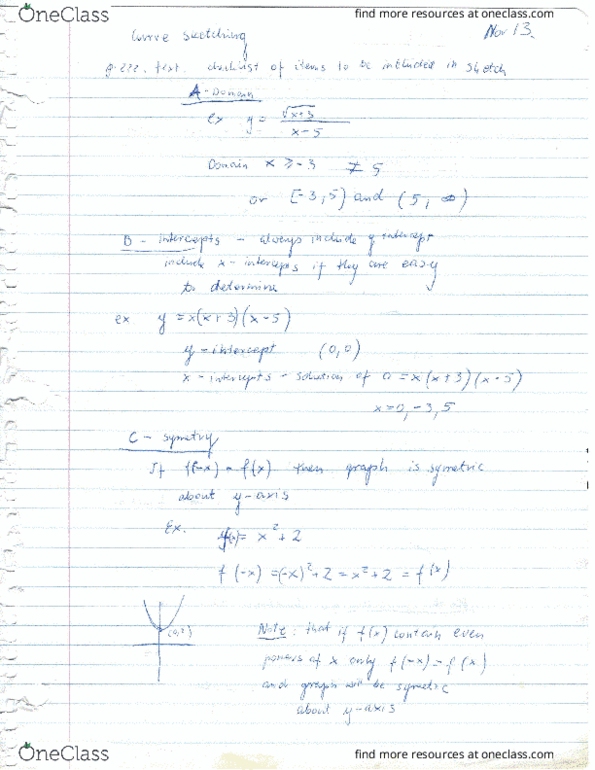 OneClass
find more resources at oneclass.com
Curve sketching
Nov 13.
p. 222. text. checklist of items to be included in sketch
A - Domain
ex y = √x+3 / x-5
Domain x ≥ -3 ≠ 5
or [-3, 5) and (5, ∞)
B - Intercepts - always include y intercept
include x - intercepts if they are easy
to determine
ex y = x(x+3)(x-5)
y - intercept (0,0)
x - intercepts - solution of 0 = x(x+3)(x-5)
x = 0, -3, 5
C - symetry
If f(-x) = f(x) then graph is symetric
about y-axis
Ex. f(x) = x² + 2
f(-x) = (-x)² + 2 = x² + 2 = f(x)
(0,2)
Note: that if f(x) contain even
powers of x only f(-x) = f(x)
and graph will be symetric
about y-axis
OneClass
find more resources at oneclass.com